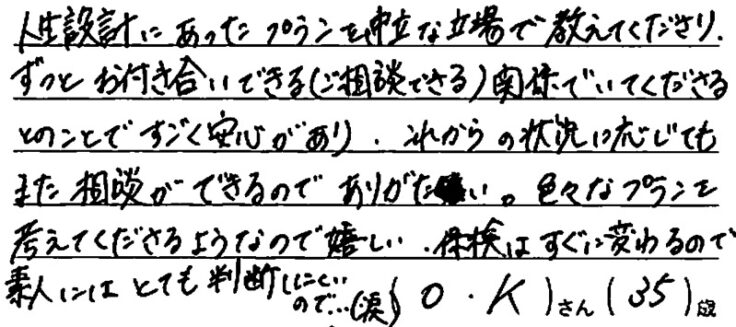 人生設計にあったプランを中立な立場で教えてくださり、
ずっとお付き合いできる(ご相談できる)関係でいてくださる
とのことですごく安心があり、これからの状況に応じても
また相談ができるのでありがたい。色々なプランを
考えてくださるようなので嬉しい、保検はすぐに変わるので
素人にはとても判断しにくい
ので…(涙)( O・K )さん ( 35 )歳